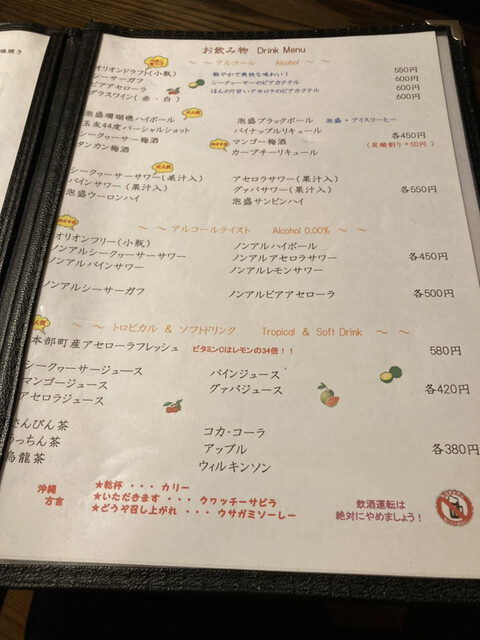 塩焼き
お飲み物 Drink Menu
～ ～ アルコール Alcohol ～ ～
オリオンドラフト(小瓶) 軽やかで爽快な味わい！ 550円
シーサーガフ シークヮーサーのビアカクテル 600円
ビアアセローラ ほんのり甘いアセロラのビアカクテル 600円
グラスワイン(赤・白) 600円
泡盛珊瑚礁ハイボール 泡盛ブラックボール 泡盛 + アイスコーヒー
玉友44度パーシャルショット パイナップルリキュール
シークヮーサー梅酒 マンゴー梅酒 各450円
タンカン梅酒 カーブチーリキュール (炭酸割り+50円)
シークヮーサーサワー(果汁入) アセロラサワー(果汁入)
パインサワー(果汁入) グァバサワー(果汁入) 各550円
泡盛ウーロンハイ 泡盛サンピンハイ
～ ～ アルコールテイスト Alcohol 0.00% ～ ～
オリオンフリー(小瓶) ノンアルハイボール
ノンアルシークヮーサーサワー ノンアルアセロラサワー 各450円
ノンアルパインサワー ノンアルレモンサワー
ノンアルシーサーガフ ノンアルビアアセローラ 各500円
～ ～ トロピカル & ソフトドリンク Tropical & Soft Drink ～ ～
本部町産アセローラフレッシュ ビタミンCはレモンの34倍！！ 580円
シークヮーサージュース パインジュース
マンゴージュース グァバジュース 各420円
アセロラジュース
さんぴん茶 コカ・コーラ
うっちん茶 アップル 各380円
烏龍茶 ウィルキンソン
沖縄方言
★乾杯 ・・・ カリー
★いただきます ・・・ クヮッチーサビラ
★どうぞ召し上がれ ・・・ ウサガミソーレー
飲酒運転は
絶対にやめましょう！